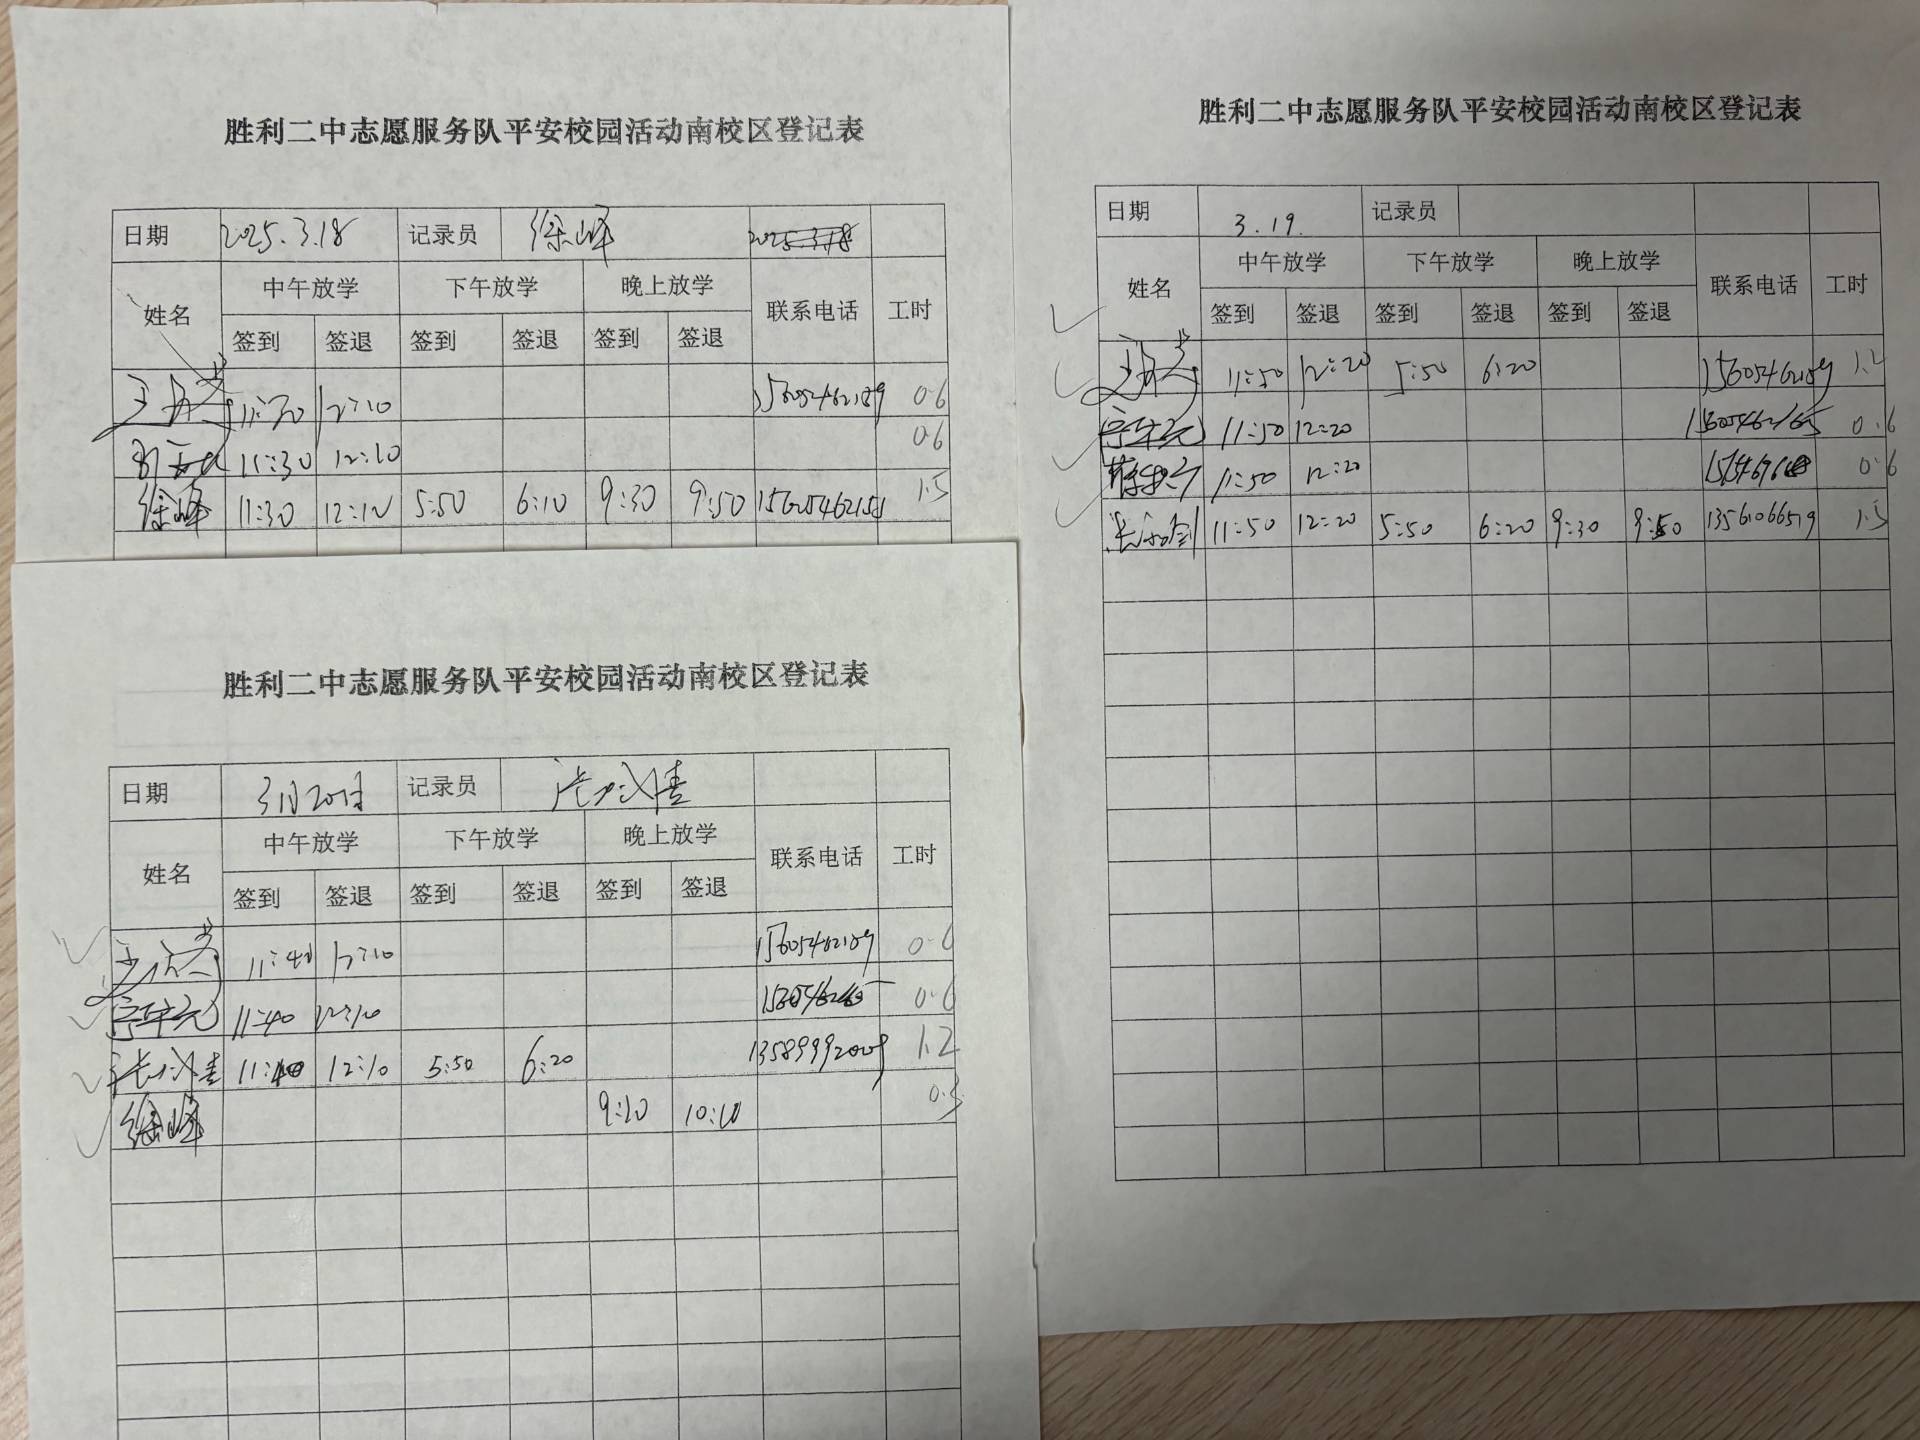 胜利二中志愿服务队平安校园活动南校区登记表
日期 2025.3.18 记录员 徐峰 2025.3.18
姓名 中午放学 下午放学 晚上放学 联系电话 工时
签到 签退 签到 签退 签到 签退
11:30 12:10 15605462189 0.6
11:30 12:10 0.6
徐峰 11:30 12:10 5:50 6:10 9:30 9:50 1.5
胜利二中志愿服务队平安校园活动南校区登记表
日期 3.19. 记录员
姓名 中午放学 下午放学 晚上放学 联系电话 工时
签到 签退 签到 签退 签到 签退
11:50 12:20 5:50 6:20 15605462189 1.2
11:50 12:20 0.6
11:50 12:20 0.6
11:50 12:20 5:50 6:20 9:30 9:50 13561066519 1.5
胜利二中志愿服务队平安校园活动南校区登记表
日期 3月20日 记录员
姓名 中午放学 下午放学 晚上放学 联系电话 工时
签到 签退 签到 签退 签到 签退
11:40 12:10 15605462189 0.6
11:40 12:10 0.6
11:40 12:10 5:50 6:20 13589992009 1.2
徐峰 10:10